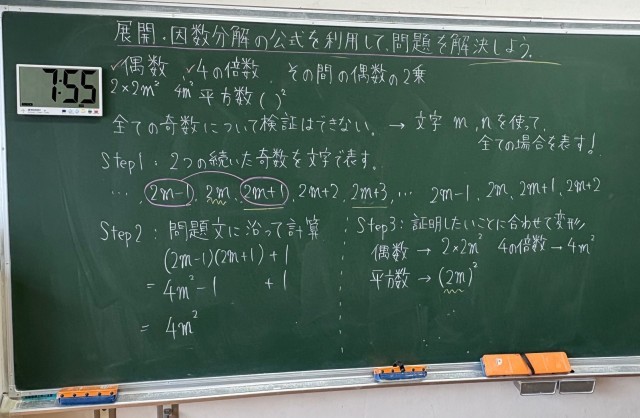 展開・因数分解の公式を利用して、問題を解決しよう。
7:55
✓偶数 ✓4の倍数 その間の偶数の2乗
2×2m² 4m² 平方数( )²
全ての奇数について検証はできない。→ 文字 m, nを使って、
全ての場合を表す!
Step1 : 2つの続いた奇数を文字で表す。
…, 2m-1, 2m, 2m+1, 2m+2, 2m+3, … 2m-1, 2m, 2m+1, 2m+2
Step2 : 問題文に沿って計算
(2m-1)(2m+1)+1
= 4m²-1 +1
= 4m²
Step3 : 証明したいことに合わせて変形
偶数 → 2×2m² 4の倍数→4m²
平方数 → (2m)²